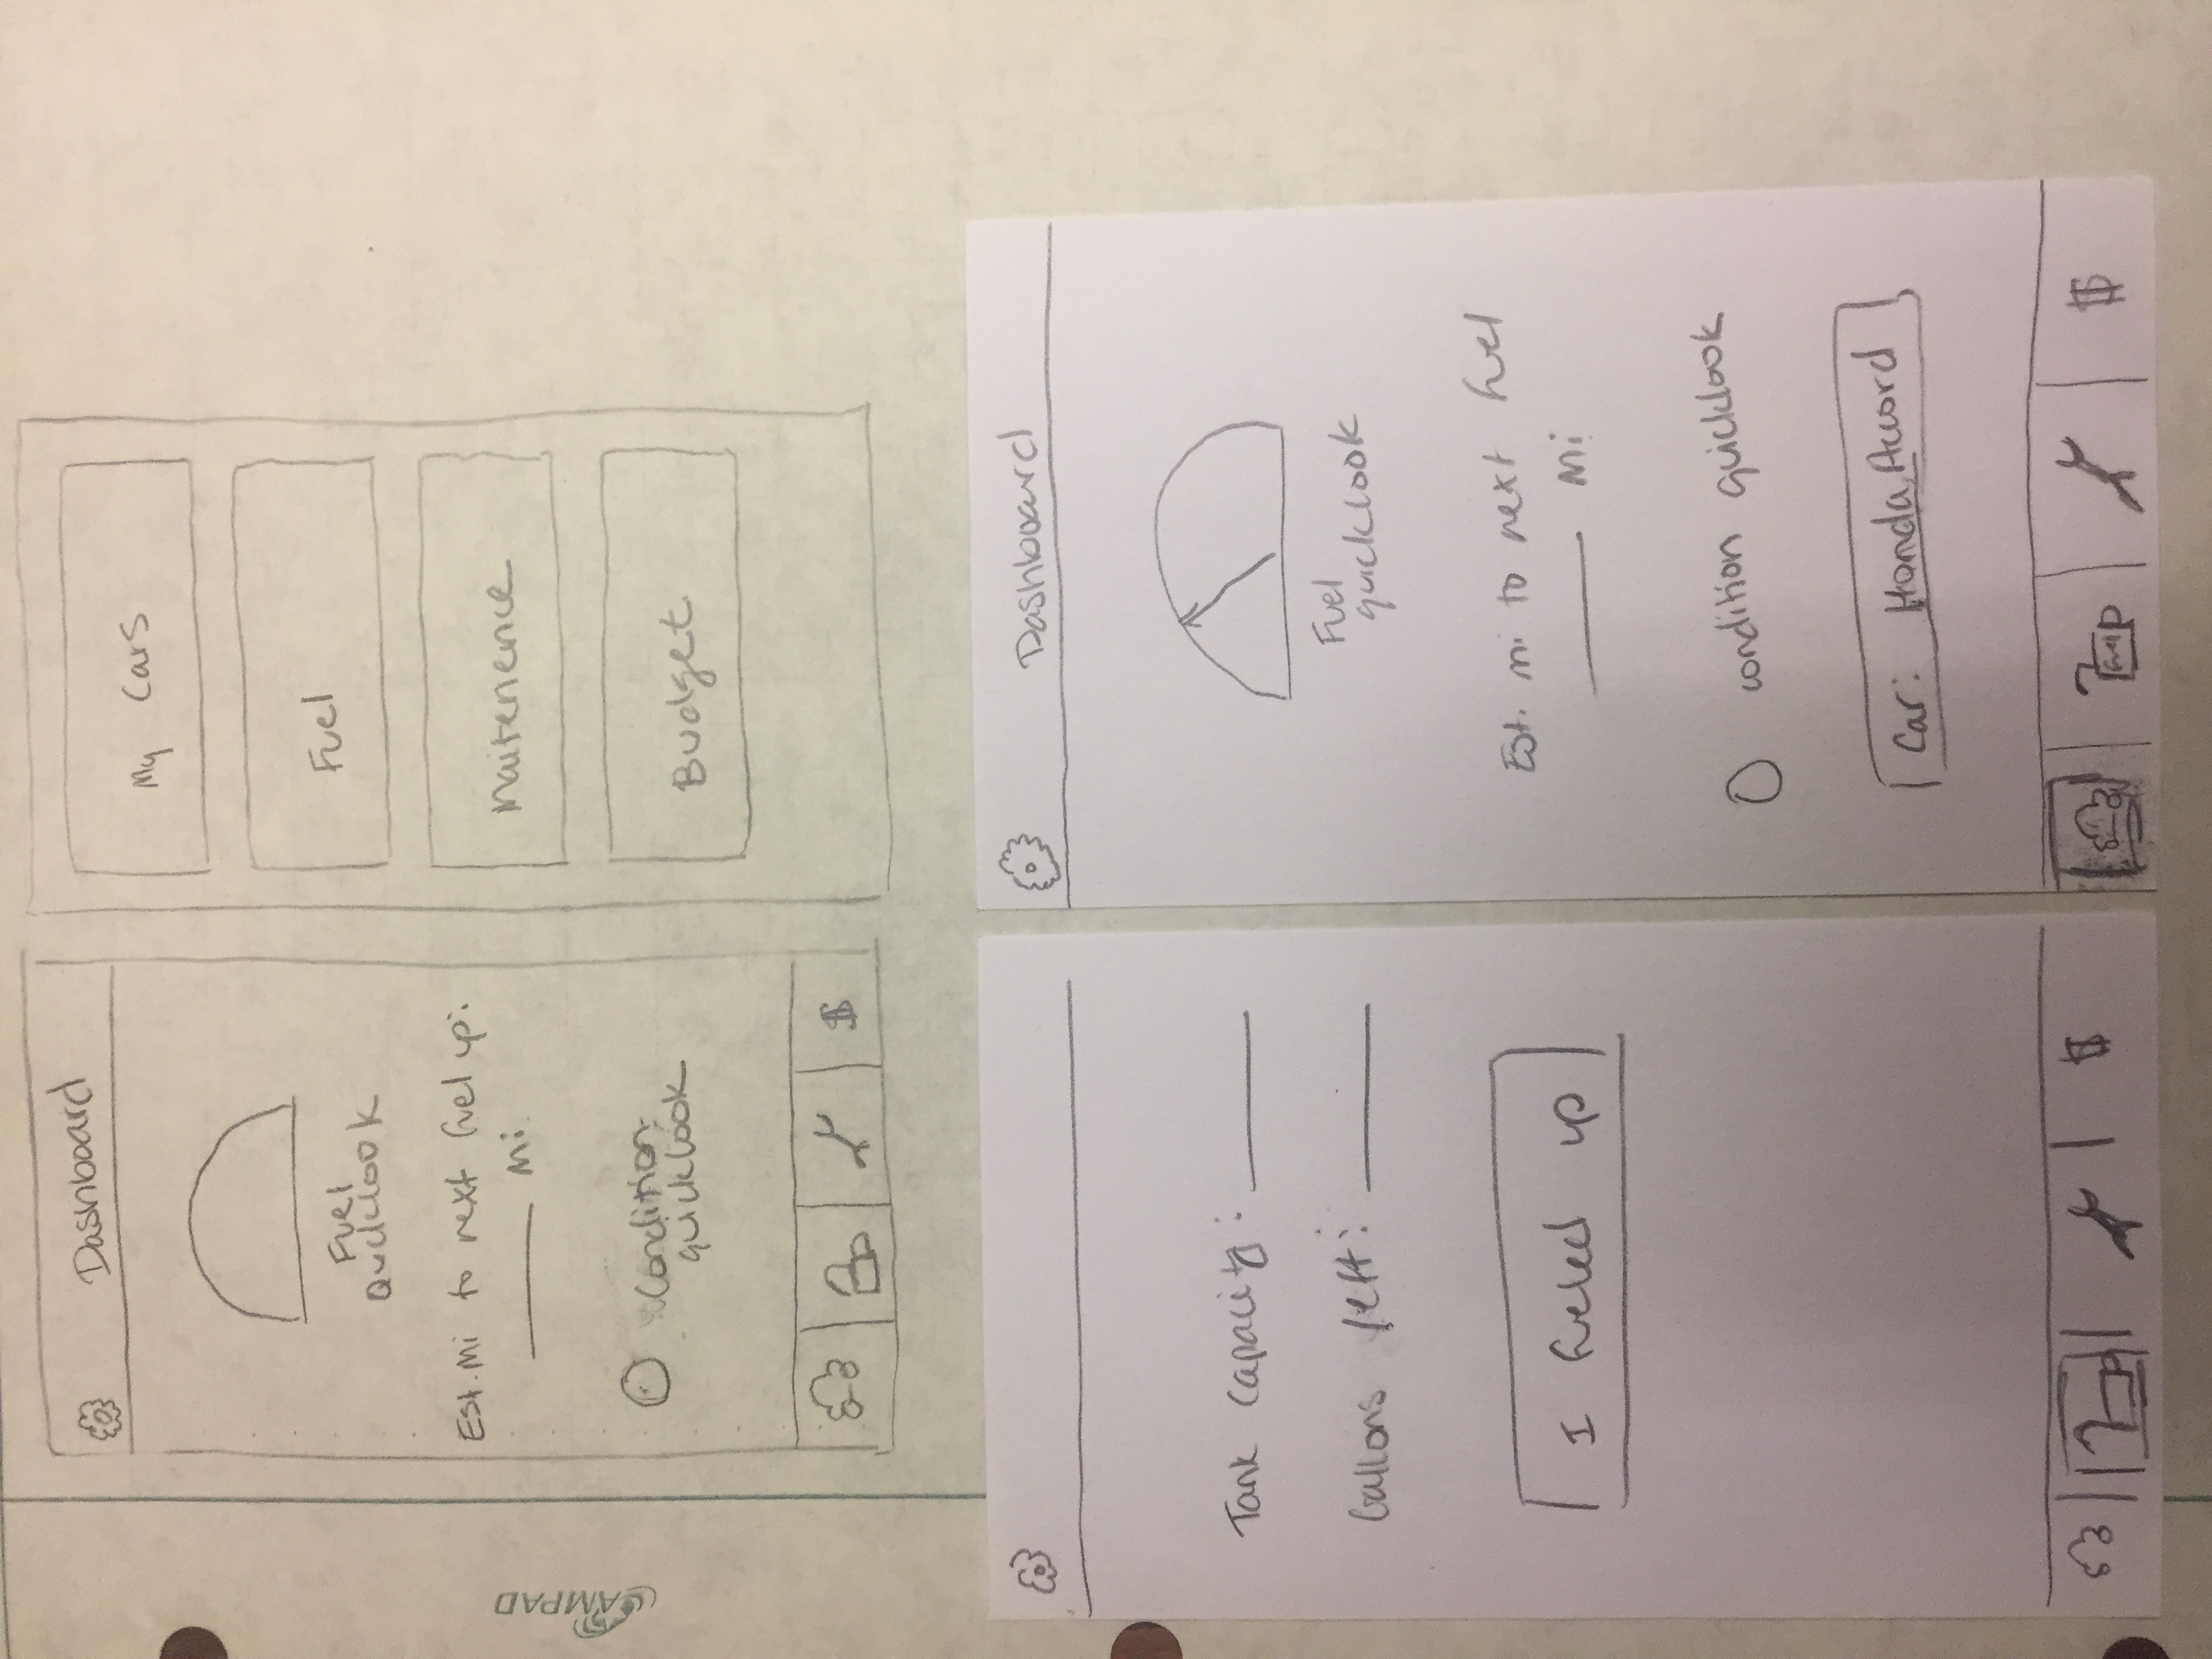 Dashboard
Fuel
Quicklook
Est. Mi to next fuel up:
Mi.
Condition
quicklook
$
My Cars
Fuel
Maitenence
Budget
AMPAD
Tank capacity:
Gallons left:
I fueled up
$
Dashboard
Fuel
quicklook
Est. mi to next fuel
Mi
condition quicklook
Car: Honda Accord
$